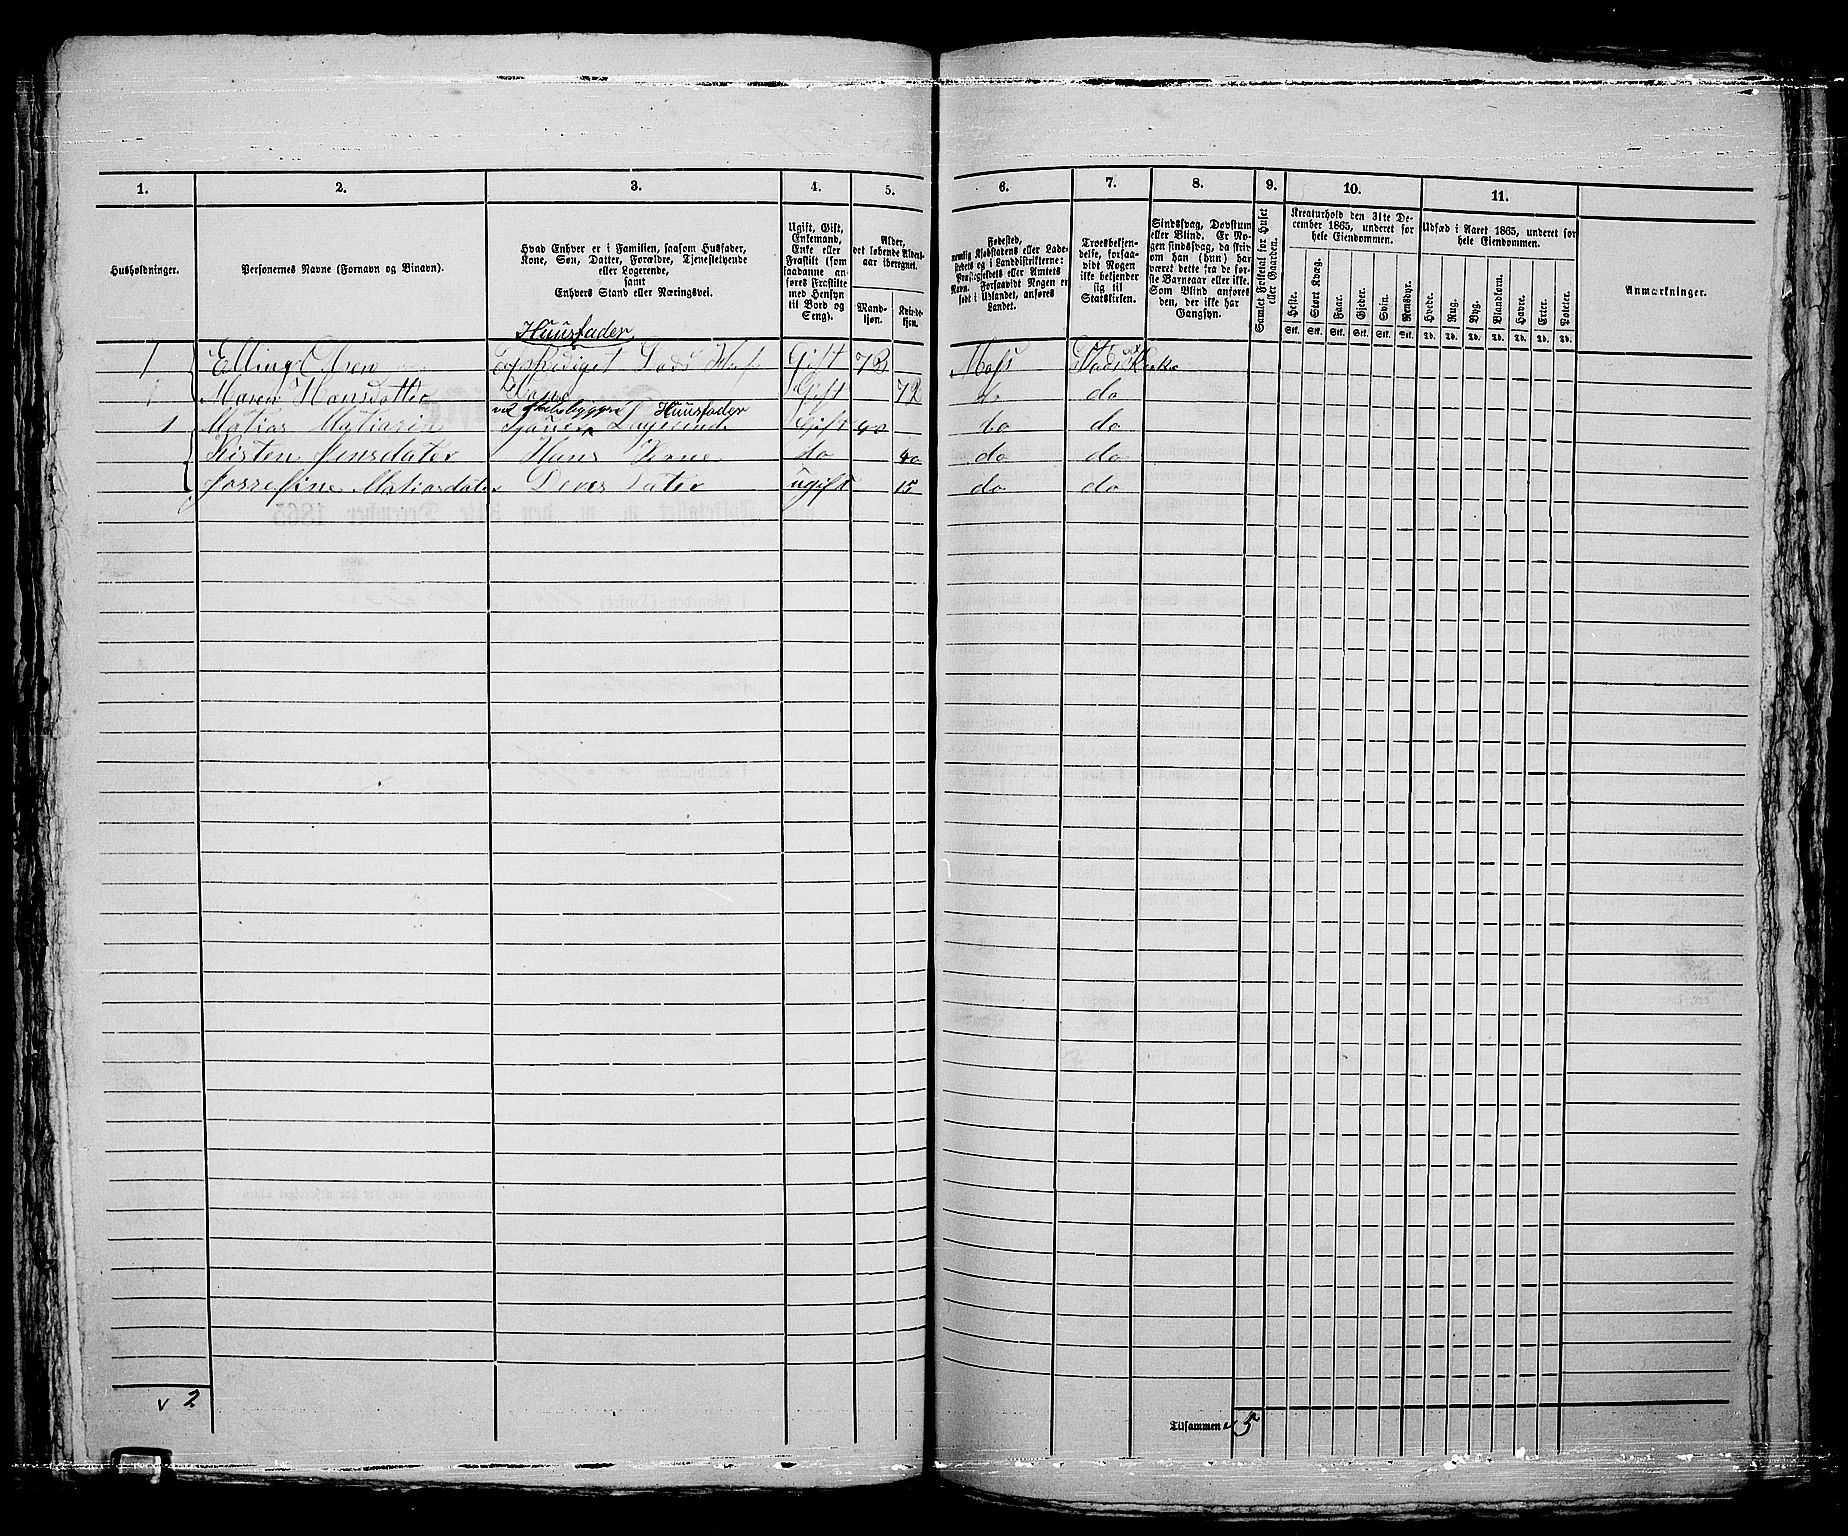 1. 2. 3. 4. 5. 6. 7. 8. 9. 10. 11.
Husholdninger.
Personernes Navne (Fornavn og Binavn).
Hvad Enhver er i Familien, saasom Husfader,
Kone, Søn, Datter, Forældre, Tjenestetyende
eller Logerende,
samt
Enhvers Stand eller Næringsvei.
Ugift, Gift,
Enkemand,
Enke eller
Fraskilt (som
saadanne an-
føres Fraskilte
med Hensyn
til Bord og
Seng).
Alder,
det løbende Alders-
aar iberegnet.
Mand-
kjøn.
Kvinde-
kjøn.
Fødested,
nemlig Kjøbstadens eller Lade-
stedets og i Landdistrikterne:
Præstegjeldets eller Amtets
Navn. Forsaavidt Nogen er
født i Udlandet, anføres
Landet.
Troesbekjen-
delse, forsaa-
vidt Nogen
ikke bekjender
sig til
Statskirken.
Sindssvag, Døvstum
eller Blind. Er No-
gen sindssvag, da skriv
om han (hun) har
været dette fra de før-
ste Barneaar eller ikke.
Som Blind anføres
den, der ikke har
Gangsyn.
Samlet Folketal for Huset
eller Gaarden.
Kreaturhold den 31te De-
cember 1865, underet for
hele Eiendommen.
Heste. Stort Kvæg. Faar. Gjeder. Svin. Rensdyr.
Stk. Stk. Stk. Stk. Stk. Stk.
Udsæd i Aaret 1865, underet for
hele Eiendommen.
Hvede. Rug. Byg. Blandkorn. Havre. Erter. Poteter.
Td. Td. Td. Td. Td. Td. Td.
Anmærkninger.
Huusfader
1 Elling Olsen Gift 73 Moss Stads Kirke
Maren Hansdatter Kone Gift 72 do do
Huusfader
1 Matias Gift 40 do do
Kisten Jensdater Hans Kone do 40 do do
Jossefine Matiasdater Deres Dater ugift 15 do do
v 2
Tilsammen v 5